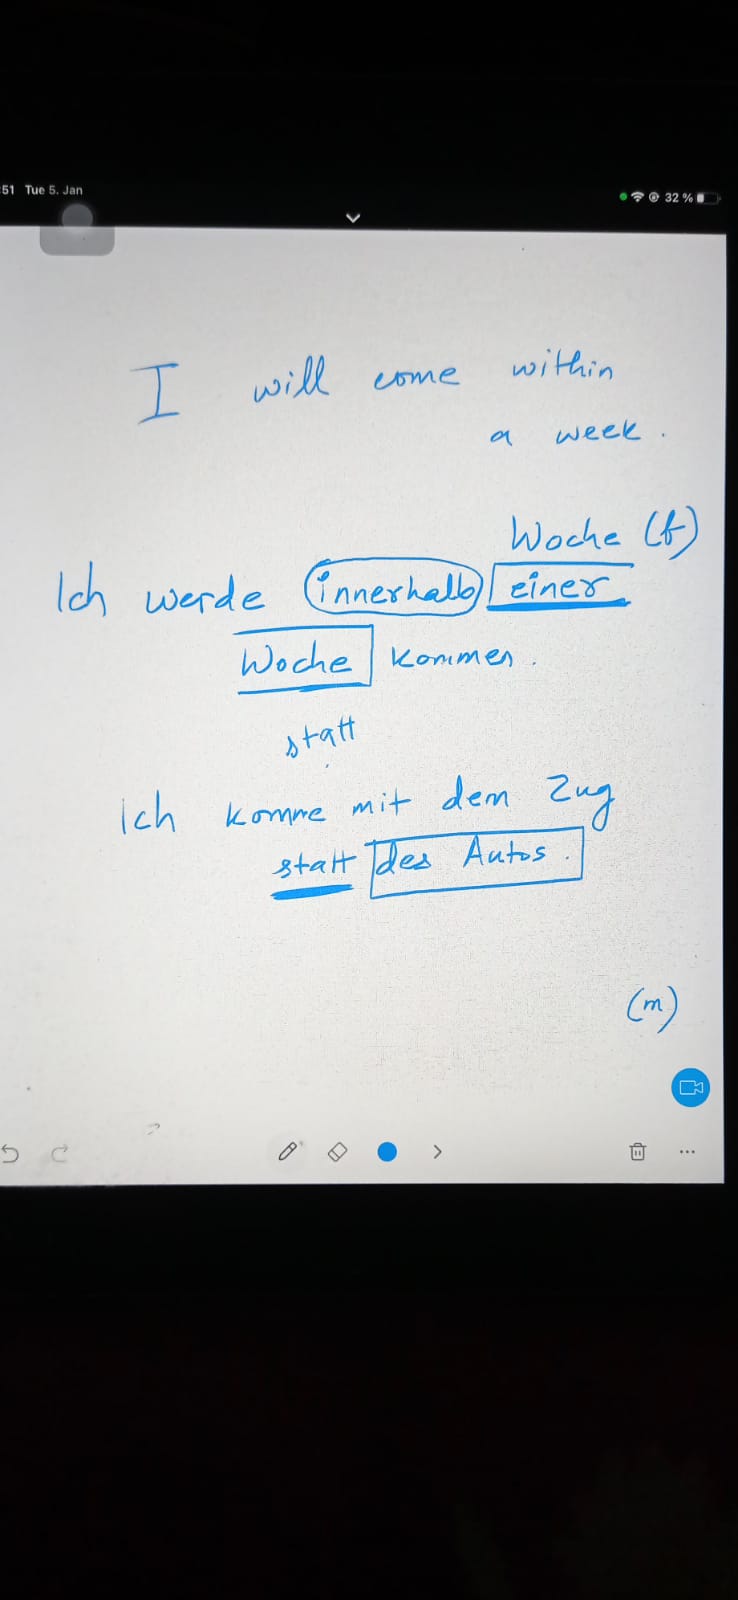 51 Tue 5. Jan
32 %
I will come within
a week.
Woche (f)
Ich werde innerhalb einer
Woche kommen.
statt
Ich komme mit dem Zug
statt des Autos.
(m)